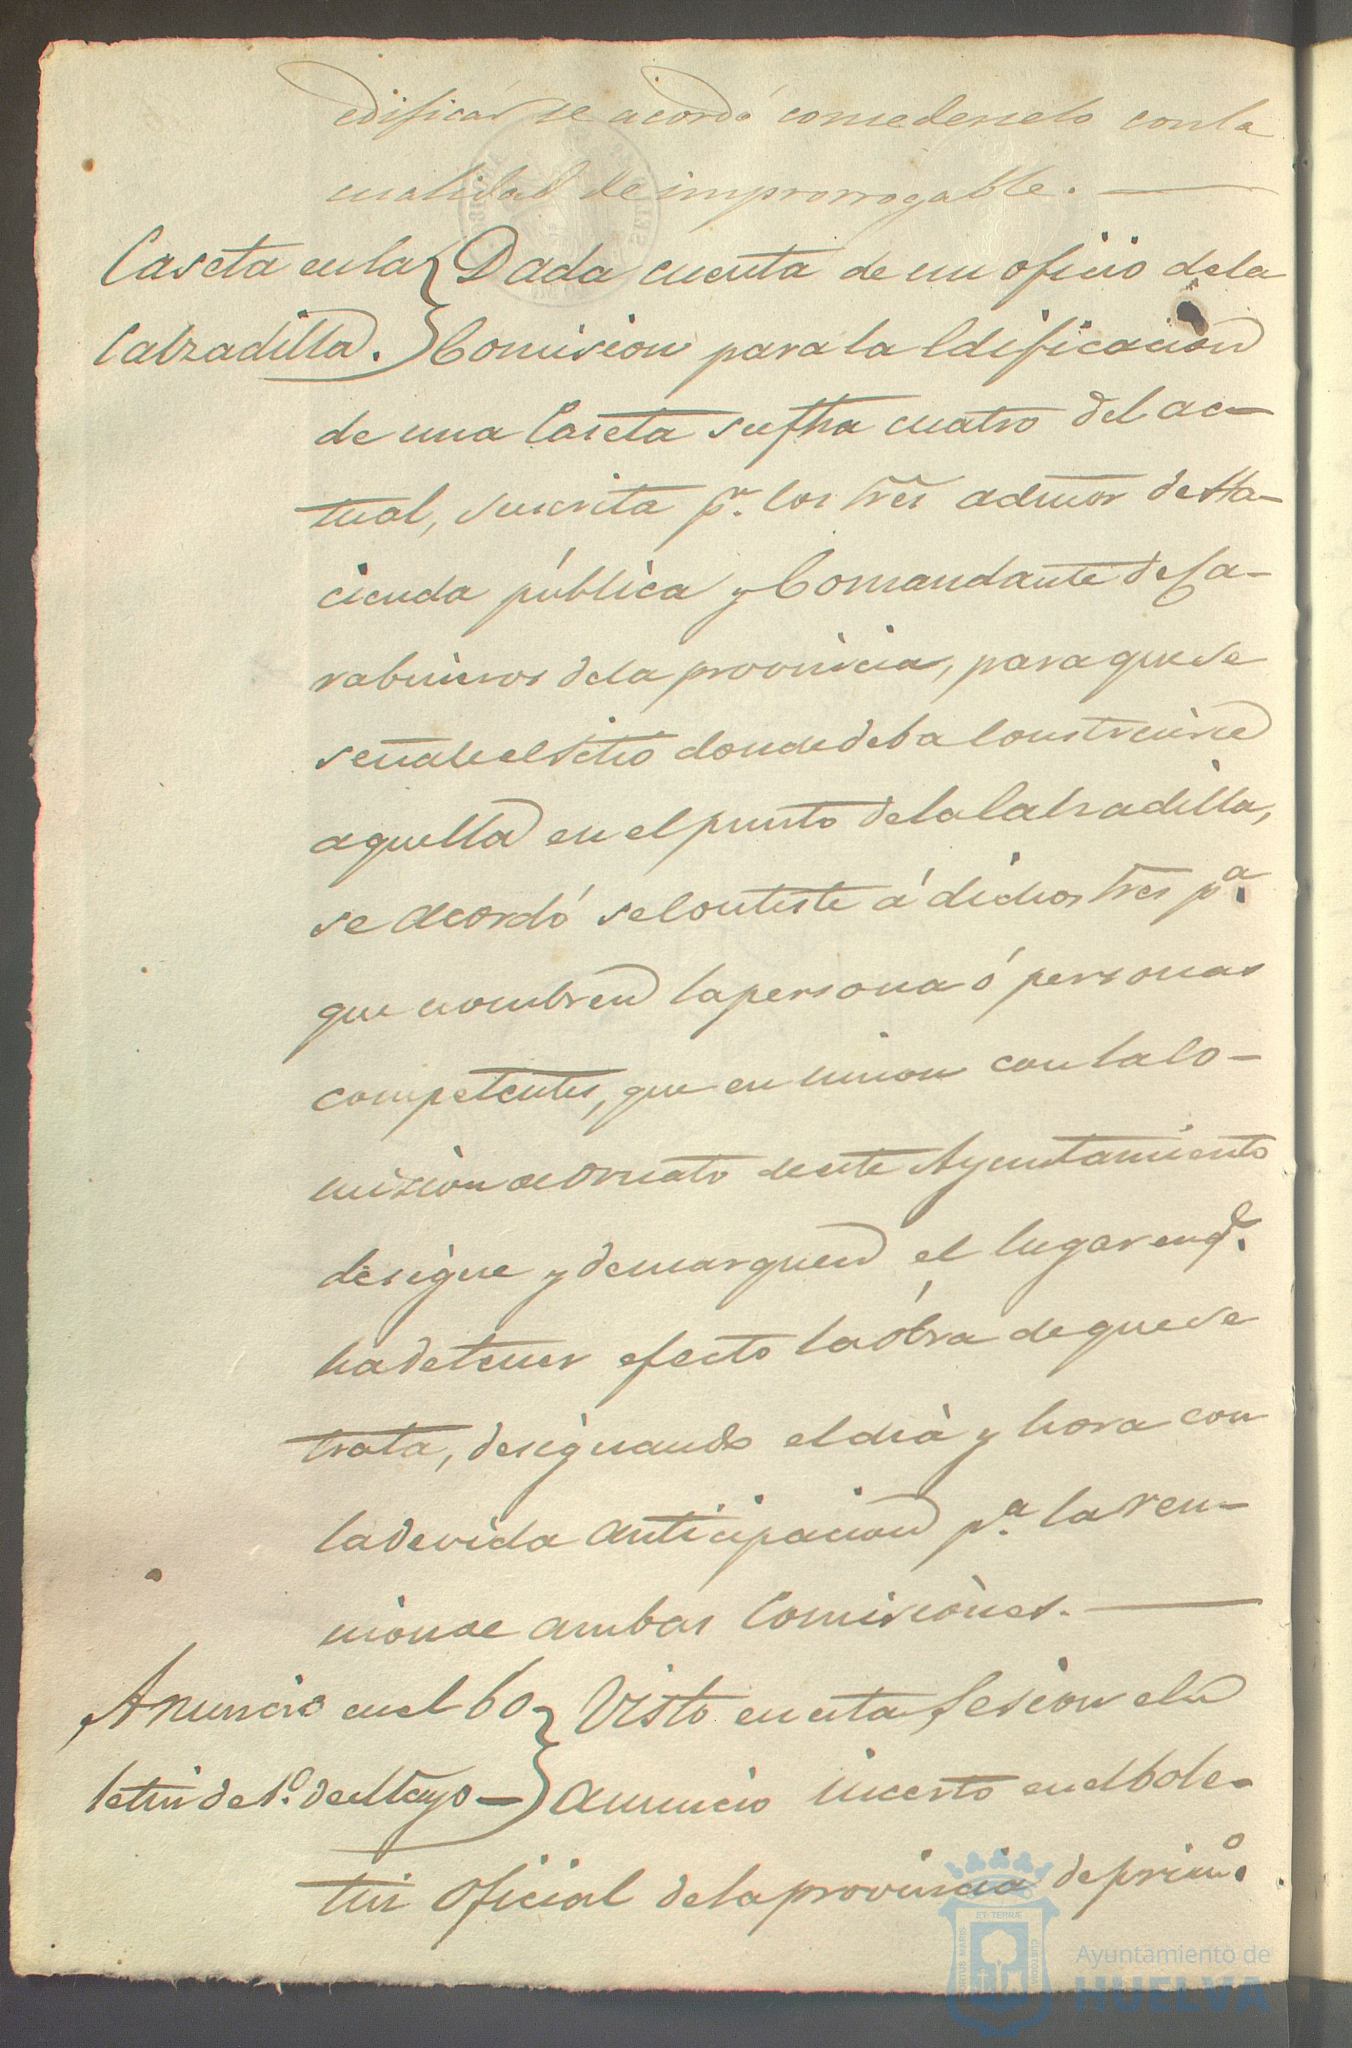 edificar se acordó consederselo con la
cualidad de improrrogable. —
Caseta en la Calzadilla.
Dada cuenta de un oficio de la
Comision para la Edificacion
de una Caseta su fha cuatro del ac-
tual, suscrita pr. los Sres admor de Ha-
cienda pública y Comandante de Ca-
rabineros de la provincia, para que se
señale el sitio donde deba Construirse
aquella en el punto de la Calzadilla,
se acordó se Conteste á dichos Sres pa.
que nombren la persona ó personas
competentes, que en union con la Co-
mision de Ornato de este Ayuntamiento
designe y demarquen el lugar en qe.
ha de tener efecto la óbra de que se
trata, designando el dia y hora con
la devida anticipacion pa. la reu-
nion de ambas Comisiones. —
Anuncio en el bo-
letin de 1o. de Mayo —
Visto en esta Sesion el
anuncio incerto en el bole-
tin Oficial de la provincia de primo.
Ayuntamiento de
HUELVA